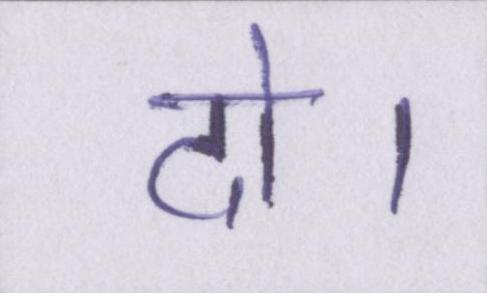 दो।